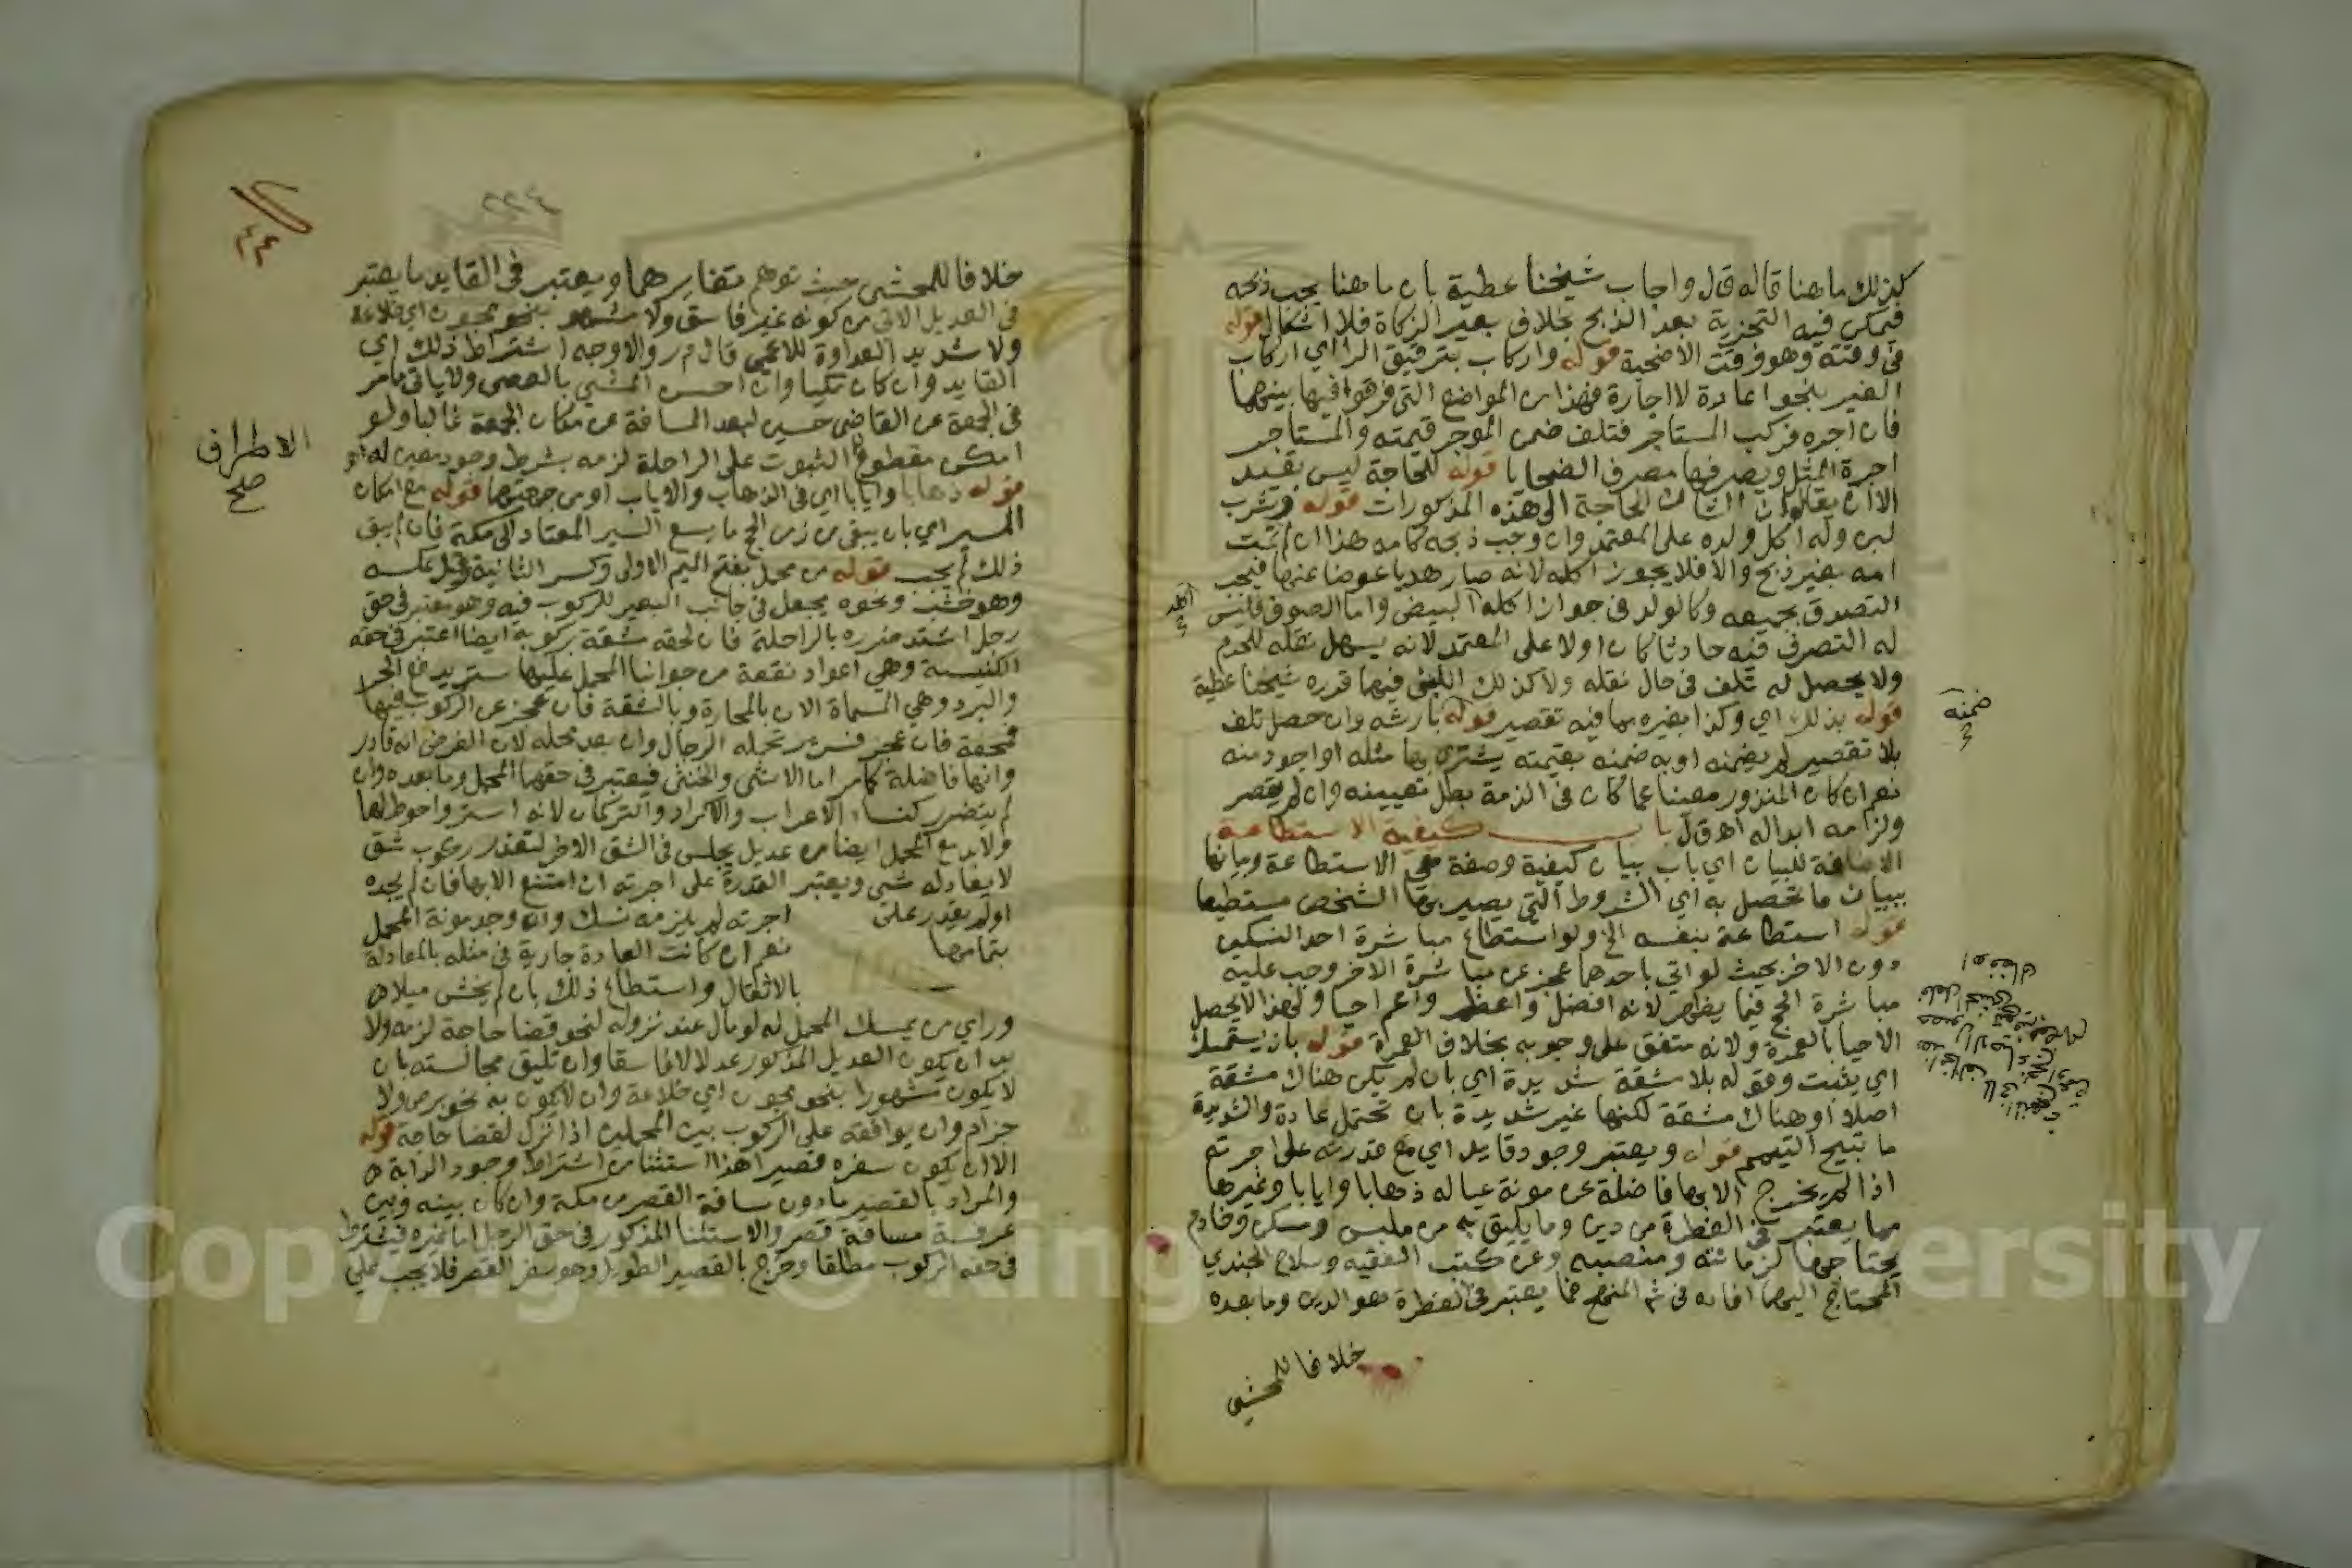 كذلك ما هنا قاله ق ل واجاب شيخنا عطية بان ما هنا يجب ذبحه
فيمكن فيه التجزية بعد الذبح بخلاف بعير الزكاة فلا اشكال قوله
في وقته وهو وقت الاضحية قوله واركاب بترقيق الراء اي اركاب
الغير بنحو اعادة لا اجارة فهذا من المواضع التي فرقوا فيها بينهما
فان اجره فركب المستاجر فتلف ضمن الموجر قيمته والمستاجر
اجرة المثل ويصرفها مصرف الضحايا قوله للحاجة ليس بقيد
الا ان يقال ان الشان الحاجة الى هذه المذكورات قوله وشرب
لبن وله اكل ولده على المعتمد وان وجب ذبحه كامه هذا ان لم تمت
امه بغير ذبح والا فلا يجوز اكله لانه صار هديا عوضا عنها فيجب
التصدق بجميعه وكالولد في جواز اكله البيض واما الصوف فليس
له التصرف فيه حادثا كان اولا على المعتمد لانه يسهل نقله للحرم
ولا يحصل له تلف في حال نقله ولا كذلك اللبن فيهما قدره شيخنا عطية
قوله بذلك اي وكذا بغيره مما فيه تقصير قوله بارشه وان حصل تلف
بلا تقصير لم يضمنه او به ضمنه بقيمته يشتري بها مثله او اجود منه
نعم ان كان المنذور معينا عما كان في الذمة بطل تعيينه وان لم يقصر
ولزمه ابداله اهـ ق ل باب كيفية الاستطاعة
الاضافة للبيان اي باب بيان كيفية وصفة هي الاستطاعة وبيانها
ببيان ما تحصل به اي الشروط التي يصير بها الشخص مستطيعا
قوله استطاعة بنفسه الخ ولو استطاع مباشرة احد النسكين
دون الاخر بحيث لو اتي باحدهما عجز عن مباشرة الاخر وجب عليه
مباشرة الحج فيما يظهر لانه افضل واعظم واعم احيا ولهذا لا يحصل
الاحيا بالعمرة ولانه متفق على وجوبه بخلاف العمرة قوله بان يستمسك
اي يثبت وقوله بلا مشقة شديدة اي بان لم يكن هناك مشقة
اصلا او هناك مشقة لكنها غير شديدة بان تحتمل عادة والشديدة
ما تبيح التيمم قوله ويعتبر وجود قايد اي مع قدرته على اجرته
اذا لم يخرج الا بها فاضلة عن مونة عياله ذهابا وايابا وغيرها
مما يعتبر في الفطرة من دين وما يليق به من ملبس ومسكن وخادم
يحتاجها لزمانته ومنصبه وعن كتب الفقيه وسلاح الجندي
المحتاج اليها افاده في شم المنهج فما يعتبر في الفطرة هو الدين وما بعده
خلافا للمحشي
ضمنه
خلافا للمحشي حيث توهم تغايرهما ويعتبر في القايد ما يعتبر
في العديل الاتي من كونه غير فاسق ولا مشهور بنحو مجون اي خلاعة
ولا شديد العداوة للاعمى قال م ر والاوجه اشتراط ذلك اي
القايد وان كان مكيا وان احسن المشي بالعصى ولا ياتي ما مر
في الجمعة عن القاضي حسين لبعد المسافة عن مكان الجمعة غالبا ولو
امكن مقطوع الثبوت على الراحلة لزمه بشرط وجود معين له اهـ
قوله ذهابا وايابا اي في الذهاب والاياب او من جهتهما قوله مع امكان
المسير اي بان يبقى من زمن الحج ما يسع السير المعتاد الى مكة فان لم يبق
ذلك لم يجب قوله من محمل بفتح الميم الاولى وكسر الثانية وقيل عكسه
وهو خشب ونحوه يجعل في جانب البعير للركوب فيه وهو معتبر في حق
رجل اشتد ضرره بالراحلة فان لحقه مشقة بركوبه ايضا اعتبر في حقه
الكنيسة وهي اعواد نقعة من جوانب المحمل عليها ستر يدفع الحر
والبرد وهي المسماة الان بالمحارة وبالشقة فان عجز عن الركوب فيها
فمحفة فان عجز فسرير تحمله الرجال وان بعد محله لان الفرض انه قادر
وانها فاضلة كما مر اما الانثى والخنثى فيعتبر في حقهما المحمل وما بعده وان
لم يتضرر كنساء الاعراب والاكراد والتركمان لانه استر واحوط لها
ولا بد مع المحمل ايضا من عديل يجلس في الشق الاخر لتعذر ركوب شق
لا يعادله شي ويعتبر القدرة على اجرته ان امتنع الا بها فان لم يجده
او لم يقدر على اجرته لم يلزمه نسك وان وجد مونة المحمل
بتمامها نعم ان كانت العادة جارية في مثله بالمعادلة
بالاثقال واستطاع ذلك بان لم يخش ميلا
وراي من يمسك المحمل له لو مال عند نزوله لنحو قضا حاجة لزمه ولا
بد ان يكون العديل المذكور عدلا لا فاسقا وان تليق مجالسته بان
لا يكون مشهورا بنحو مجون اي خلاعة وان لا يكون به نحو برص ولا
جزام وان يوافقه على الركوب بين المحملين اذا نزل لقضا حاجة قوله
الا ان يكون سفره قصيرا هذا استثنا من اشتراط وجود الدابة
والمراد بالقصير ما دون مسافة القصر من مكة وان كان بينه وبين
عرفة مسافة قصر والاستثنا المذكور في حق الرجل اما غيره فيشترط
في حقه الركوب مطلقا وخرج بالقصير الطويل وهو سفر القصر فلا يجب على
الاطراف
صح
٢٢٤
Copyright © King University